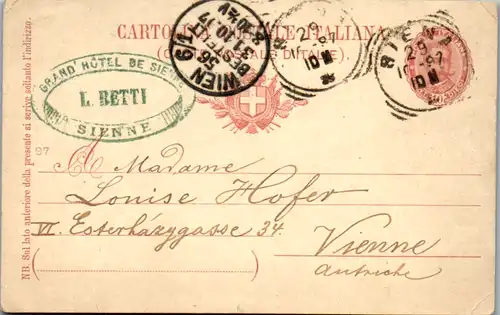 CARTOLINA POSTALE ITALIANA
(CARTE POSTALE D'ITALIE).
GRAND HÔTEL DE SIENNE
L. BETTI
SIENNE
WIEN 9/1
56
BESTELLT
SIENA
29
97
10 M
NB. Sul lato anteriore della presente si scrive soltanto l'indirizzo.
97
A Madame
Louise Hofer
VI. Esterházygasse 34.
Vienne
Autriche